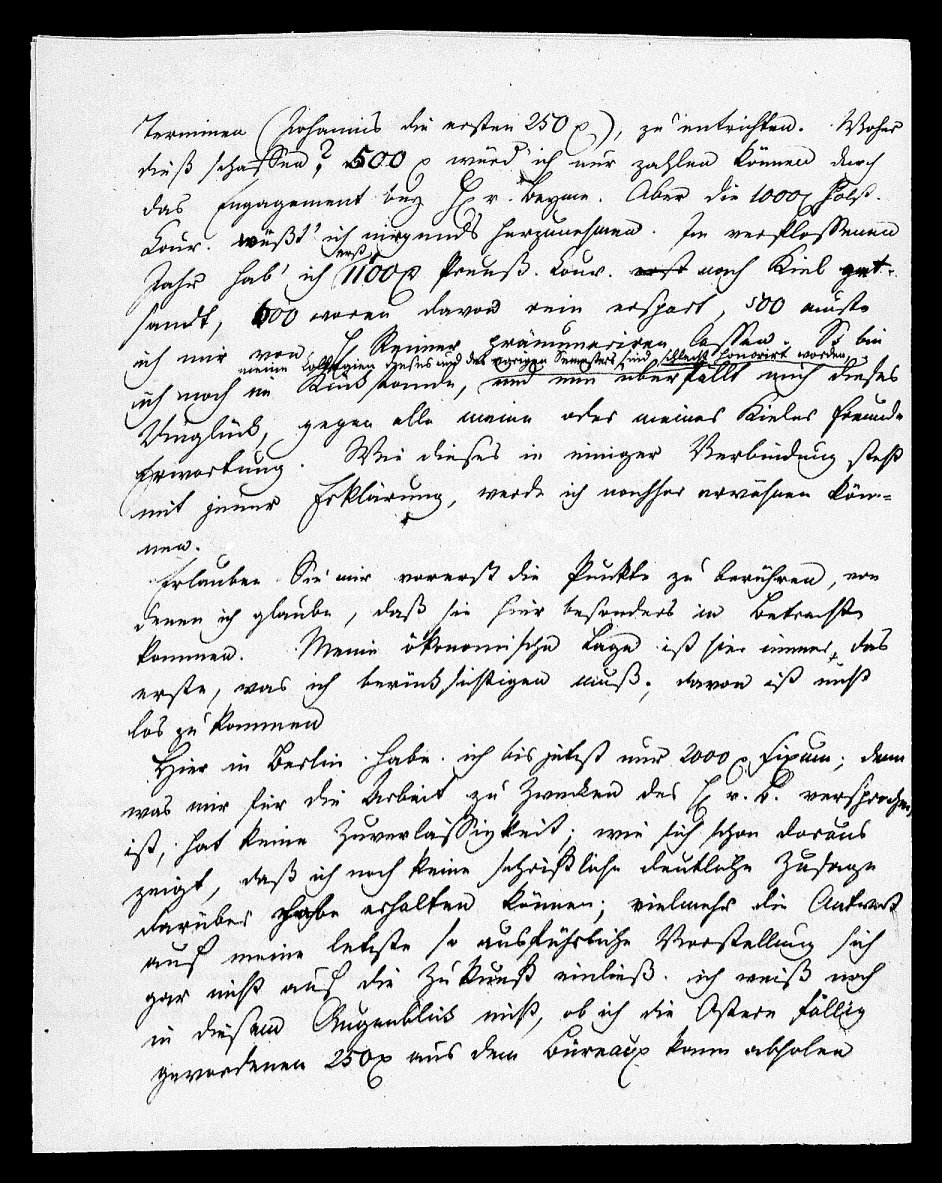 Terminen (Johannis die ersten 250 ₰), zu entrichten. Woher
dieß schaffen? 500 ₰ würd' ich nur zahlen können durch
das Engagement bey H. v. Beyme. Aber die 1000 ₰ holst.
Cour. wüßt' ich nirgends herzunehmen. Im verflossenen
Jahr hab' ich erst 1100 ₰ Preuß. Cour. nach Kiel ge-
sandt, 600 waren davon rein erspart, 500 mußte
ich mir von H. Reimer pränumeriren lassen. So bin
meine Collegien dieses und des vorigen Semesters sind schlecht honorirt worden,
ich noch in Rückstande, und nun überfällt mich dieses
Unglück, gegen alle meine oder meiner Kieler Freunde
Erwartung. Wie dieses in einiger Verbindung steht
mit jener Erklärung, werde ich nachher erwähnen kön-
nen.
Erlauben Sie mir vorerst die Punkte zu berühren, von
denen ich glaube, daß sie hier besonders in Betracht
kommen. Meine ökonomische Lage ist hier immer das
erste, was ich berücksichtigen muß; davon ist nicht
los zu kommen
Hier in Berlin habe ich bis jetzt nur 2000 ₰ Fixum; denn
was mir für die Arbeit zu Zwecken des H. v. B. versprochen
ist, hat keine Zuverlässigkeit; wie sich schon daraus
zeigt, daß ich noch keine schriftliche deutliche Zusage
darüber habe erhalten können; vielmehr die Antwort
auf meine letzte so ausführliche Vorstellung sich
gar nicht auf die Zukunft einließ. ich weiß noch
in diesem Augenblick nicht, ob ich die Ostern fällig
gewordenen 250 ₰ aus dem Büreaux kann abholen